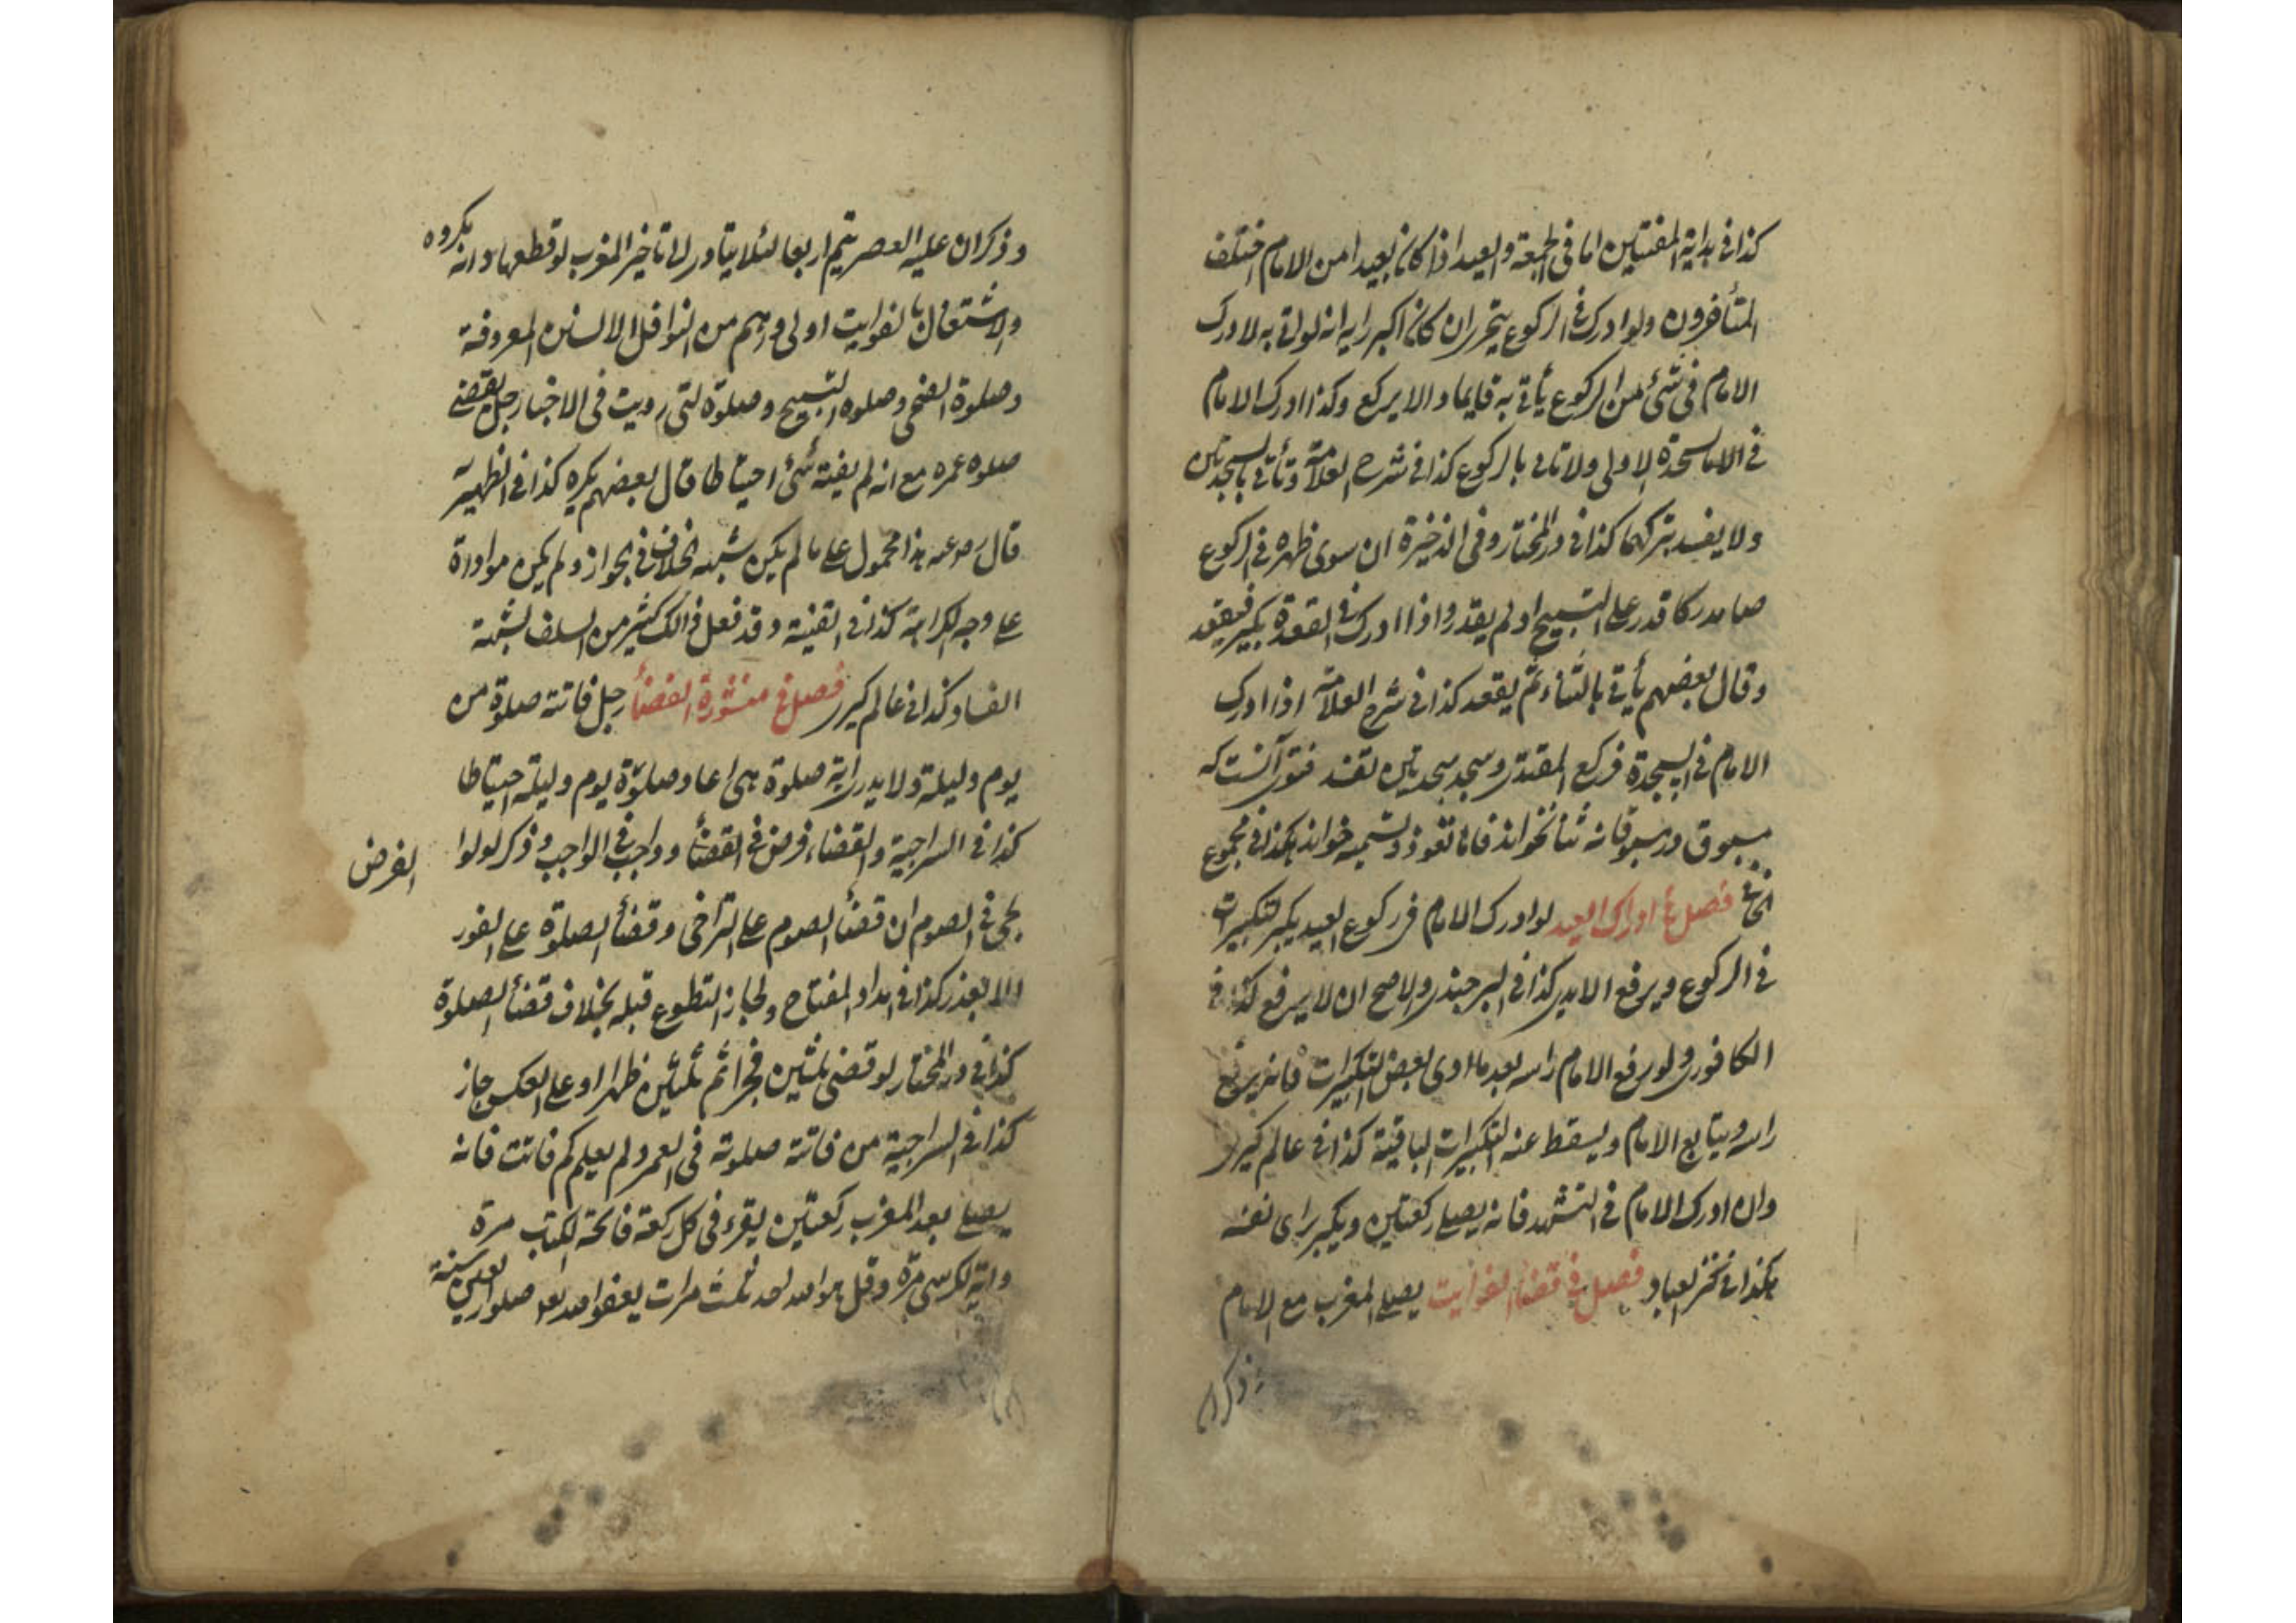 كذا فى بداية المفتيين اما فى الجمعة والعيد اذا كان بعيدا من الامام اختلف
المتأخرون ولو ادرك فى الركوع يتحرى ان كان اكبر رايه انه لو اتى به لادرك
الامام فى شئ من الركوع يأتى به قايما والا يركع وكذا ادرك الامام
فى السجدة الاولى ولا تاتى بالركوع كذا فى شرح العلامة وتأتى بالسجدتين
ولا يفسد بتركهما كذا فى در المختار وفى الذخيرة ان سوى ظهره فى الركوع
صا مدركا قدر على التسبيح او لم يقدر واذا ادرك فى القعدة يكبر فيقعد
وقال بعضهم يأتى بالثناء ثم يقعد كذا فى شرح العلامة اذا ادرك
الامام فى السجدة فركع المقتدى وسجد سجدتين تفسد فتوى آنست كه
مسبوق در مسبوقانه ثنا نخواند فاما تعوذ وتسميه خواند هكذا فى مجموع
خانى فصل فى ادراك العيد لو ادرك الامام فى ركوع العيد يكبر لتكبيرات
فى الركوع ويرفع الايدى كذا فى البرجندى والاصح ان لا يرفع كذا فى
الكافورى ولو رفع الامام راسه بعد ما ادى بعض التكبيرات فانه يرفع
راسه ويتابع الامام ويسقط عنه التكبيرات الباقية كذا فى عالم كيرى
وان ادرك الامام فى التشهد فانه يصلى ركعتين ويكبر براى نفسه
هكذا فى كنز العباد فصل فى قضا الفوايت يصلى المغرب مع الامام
وذكر ا
وذكر ان عليه العصر يتم اربعا لئلا يتادى الى تاخير المغرب لو قطعها وانه يكروه
والاشتغال بالفوايت اولى واهم من النوافل الا السنن المعروفة
وصلوة الضحى وصلوه التسبيح وصلوة التى رويت فى الاخبار رجل يقضى
صلوه عمره مع انه لم يفته شئ احتياطا قال بعضهم يكره كذا فى الظهيرية
قال رضى عنه هذا محمول على ما لم يكن شبهة الخلاف فى الجواز ولم يكن مواداة
على وجه الكراهة كذا فى القنية وقد فعل ذالك كثير من السلف لشبهة
الفساد كذا فى عالم كيرى فصل فى منثورة القضأ رجل فاتته صلوة من
يوم وليلة ولا يدرى اية صلوة هى اعاد صلوة يوم وليلة احتياطا
كذا فى السراجية والقضاء فرض فى القضأ وواجب فى الواجب وذكر لولوا
الفرض
لجى فى الصوم ان قضأ الصوم على التراخى وقضأ الصلوة على الفور
الا لعذر كذا فى امداد المفتاح ولجاز التطوع قبله بخلاف قضأ الصلوة
كذا فى در المختار لو قضى ثلثين فجرا ثم ثلثين ظهرا او على العكس جاز
كذا فى السراجية من فاتته صلوته فى العمر ولم يعلم كم فاتت فانه
يصلى بعد المغرب ركعتين يقرء فى كل ركعة فاتحة الكتب مرة
واية الكرسى مرة وقل هو الله احد ثلث مرات يعفو الله بعد صلوة اربعين سنة